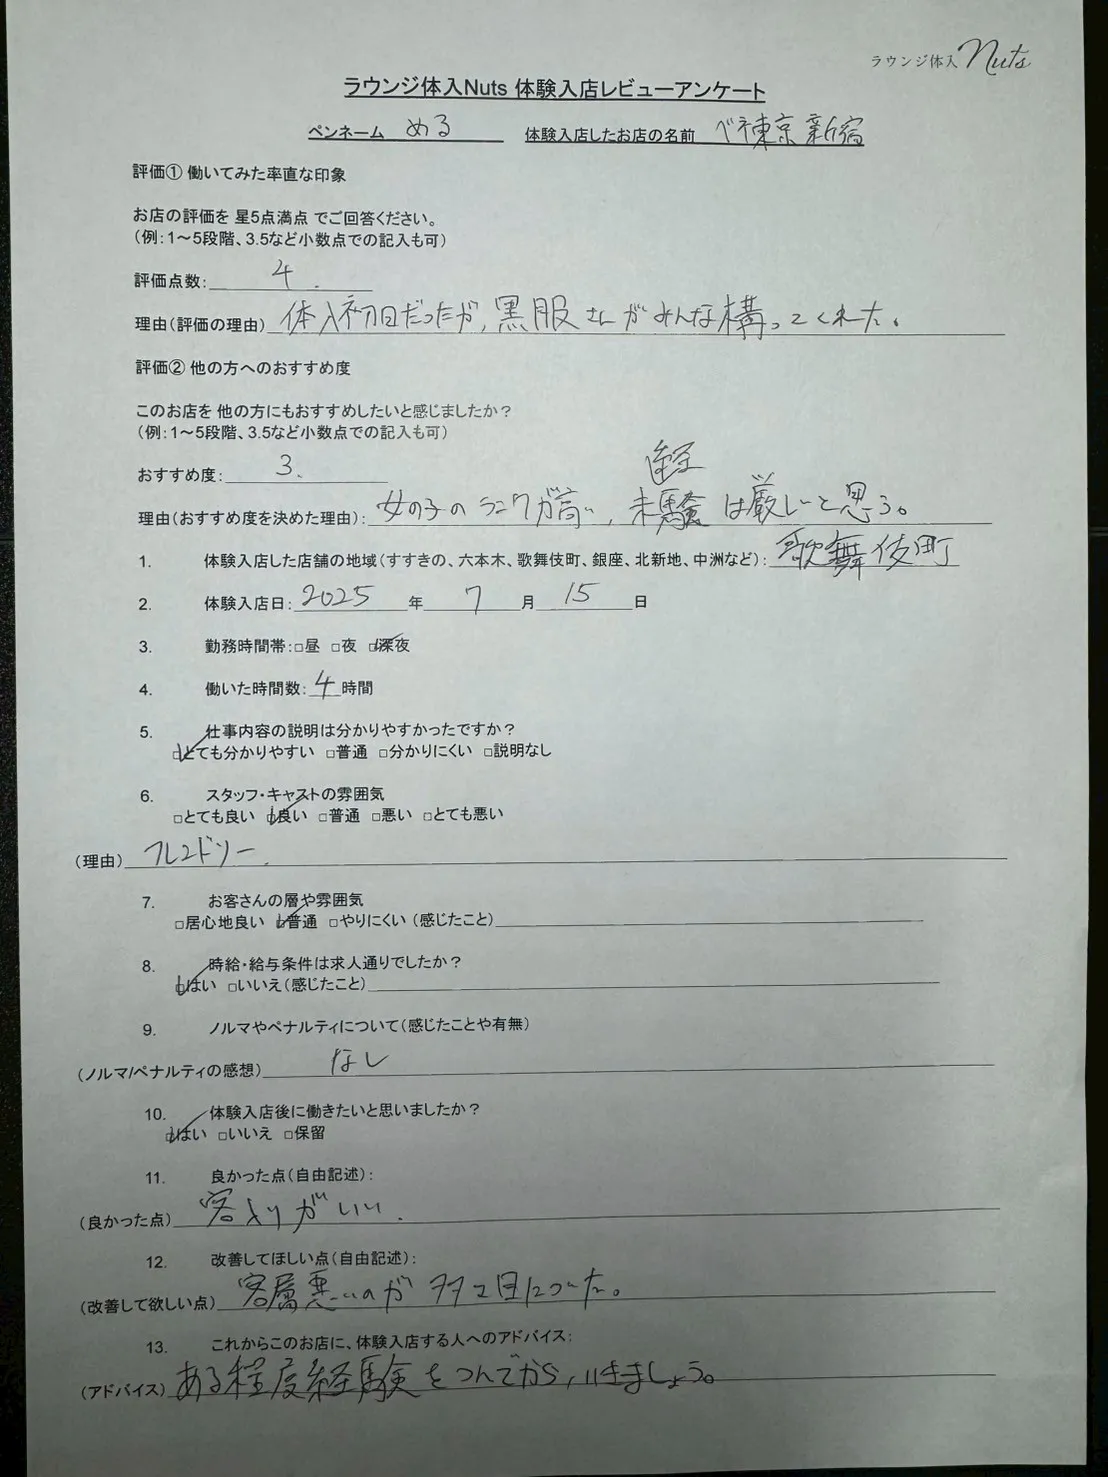 ラウンジ体入 Nuts
ラウンジ体入Nuts 体験入店レビューアンケート
ペンネーム める 体験入店したお店の名前 ベネ東京 新宿
評価① 働いてみた率直な印象
お店の評価を 星5点満点 でご回答ください。
（例：1～5段階、3.5など小数点での記入も可）
評価点数： 4.
理由（評価の理由） 体入初日だったが、黒服さんがみんな構ってくれた。
評価② 他の方へのおすすめ度
このお店を 他の方にもおすすめしたいと感じましたか？
（例：1～5段階、3.5など小数点での記入も可）
おすすめ度： 3.
経
理由（おすすめ度を決めた理由）： 女の子のランクが高い、未験は厳しいと思う。
1. 体験入店した店舗の地域（すすきの、六本木、歌舞伎町、銀座、北新地、中洲など）： 歌舞伎町
2. 体験入店日： 2025 年 7 月 15 日
3. 勤務時間帯：□昼 □夜 ☑深夜
4. 働いた時間数： 4 時間
5. 仕事内容の説明は分かりやすかったですか？
☑とても分かりやすい □普通 □分かりにくい □説明なし
6. スタッフ・キャストの雰囲気
□とても良い ☑良い □普通 □悪い □とても悪い
（理由） フレンドリー.
7. お客さんの層や雰囲気
□居心地良い ☑普通 □やりにくい （感じたこと）
8. 時給・給与条件は求人通りでしたか？
☑はい □いいえ（感じたこと）
9. ノルマやペナルティについて（感じたことや有無）
（ノルマ/ペナルティの感想） なし
10. 体験入店後に働きたいと思いましたか？
☑はい □いいえ □保留
11. 良かった点（自由記述）：
（良かった点） 客入りがいい.
12. 改善してほしい点（自由記述）：
（改善して欲しい点） 客層悪いのが多々目についた。
13. これからこのお店に、体験入店する人へのアドバイス：
（アドバイス） ある程度経験をつんでから、いきましょう。